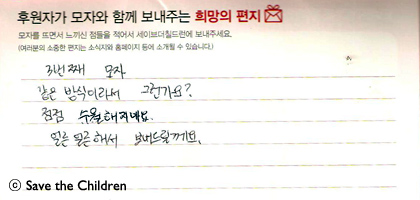 후원자가 모자와 함께 보내주는 희망의 편지
모자를 뜨면서 느끼신 점들을 적어서 세이브더칠드런에 보내주세요.
(여러분의 소중한 편지는 소식지와 홈페이지 등에 소개될 수 있습니다.)
3번째 모자
같은 방식이라서 그런가요?
점점 수월해지네요.
얼른 얼른 해서 보내드릴께요.
ⓒ Save the Children